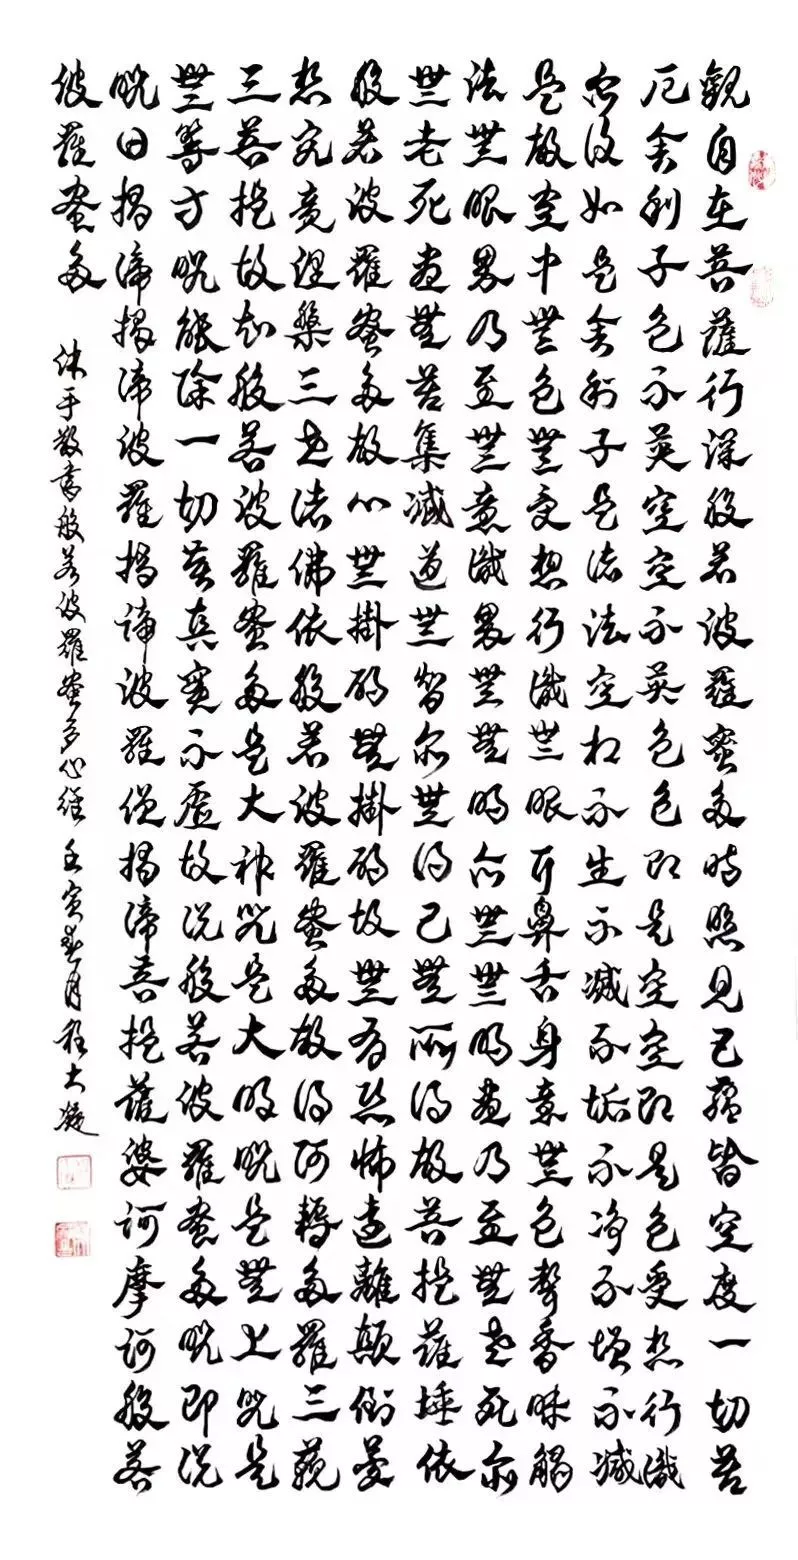 觀自在菩薩行深般若波羅蜜多時照見五蘊皆空度一切苦
厄舍利子色不異空空不異色色即是空空即是色受想行識
亦復如是舍利子是諸法空相不生不滅不垢不淨不增不減
是故空中無色無受想行識無眼耳鼻舌身意無色聲香味觸
法無眼界乃至無意識界無無明亦無無明盡乃至無老死亦
無老死盡無苦集滅道無智亦無得已無所得故菩提薩埵依
般若波羅蜜多故心無掛礙無掛礙故無有恐怖遠離顛倒夢
想究竟涅槃三世諸佛依般若波羅蜜多故得阿耨多羅三藐
三菩提故知般若波羅蜜多是大神咒是大明呪是無上咒是
無等等呪能除一切苦真實不虛故說般若波羅蜜多呪即說
呪曰揭諦揭諦波羅揭諦波羅僧揭諦菩提薩婆訶摩訶般若
波羅蜜多
沐手敬書般若波羅蜜多心經 壬寅春月程大